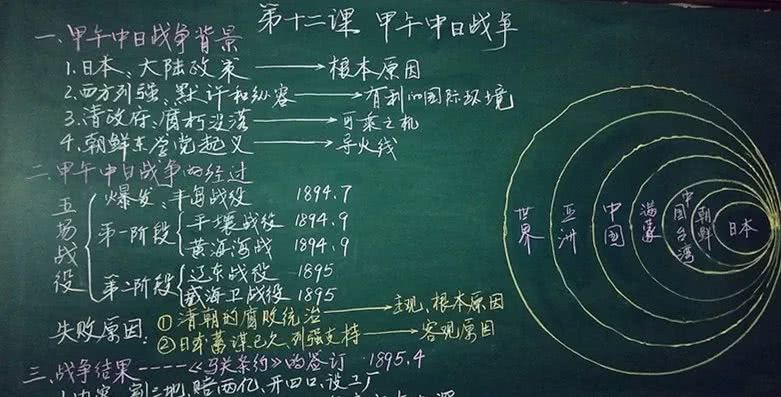 第十二课 甲午中日战争
一、甲午中日战争背景
1.日本、大陆政策 → 根本原因
2.西方列强、默许和纵容 → 有利的国际环境
3.清政府、腐朽没落 → 可乘之机
4.朝鲜东学党起义 → 导火线
二、甲午中日战争的经过
五场战役
爆发、丰岛战役 1894.7
第一阶段
平壤战役 1894.9
黄海海战 1894.9
第二阶段
辽东战役 1895
威海卫战役 1895
失败原因:
①清朝的腐败统治 → 主观、根本原因
②日本蓄谋已久 列强支持 → 客观原因
三、战争结果----《马关条约》的签订 1895.4
割三地,赔两亿,开四口,设工厂
世界
亚洲
中国
满蒙
中国台湾
朝鲜
日本